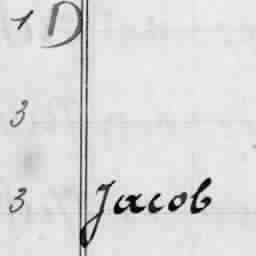 1 D
3
3 Jacob